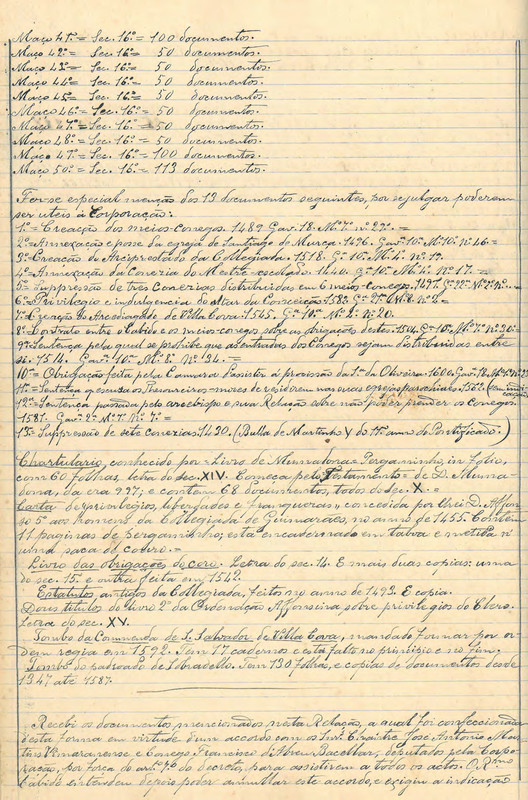 Maço 41º = Sec. 16º = 100 documentos.
Maço 42º = Sec. 16º = 50 documentos.
Maço 43º = Sec. 16º = 50 documentos.
Maço 44º = Sec. 16º = 50 documentos.
Maço 45º = Sec. 16º = 50 documentos.
Maço 46º = Sec. 16º = 50 documentos.
Maço 47º = Sec. 16º = 50 documentos.
Maço 48º = Sec. 16º = 50 documentos.
Maço 47º = Sec. 16º = 100 documentos.
Maço 50º = Sec. 16º = 113 documentos.
Faz-se especial menção dos 13 documentos seguintes, por se julgar poderem
ser uteis á Corporação:
1º = Creação dos meios conegos. 1489. Gav. 18. Mº 7. nº 27. =
2º = Annexação e posse da egreja de Santiago de Murça. 1496. Gav. 10. Mº 10. nº 46. =
3º = Creação do Arciprestado da Collegiada. 1518. Gª 10. Mº 4. nº 19.
4º = Annexação da Conezia do Mestre escolado. 1640. Gª 10. Mº 4. nº 17. =
5º = Suppressão de tres Conezias distribuidas em 6 meios conegos. 1497. Gª 2ª Mº 2º nº
6º = Privilegio e indulgencia do altar da Conceição. 1583. Gª 2ª Nº 8. =
7º = Ezerção do Arcediagado de Villa Cova. 1545. Gª 10ª Mº 2. nº 20.
8º = Contrato entre o Cabido e os meios conegos sobre as obrigações destes. 1504. Gª 10. Mº 7. nº 20. =
9º = Sentença pela qual se prohibe que as entradas dos Conegos sejam distribuidas entre
si. 1514. Gav. 10. Mº 2. nº 34. =
10º = Obrigação feita pela Camara assistir á procissão da Sra. da Oliveira. 160 Gav. 18. Mº
11º = Sentença q escusa os Thesoureiros móres de residirem nas suas egrejas parochiaes. 1562.
12º = Sentença passada pelo arcebispo e sua Relação sobre não poder prender os Conegos.
1587. Gav. 2ª Mº 1º nº 7. =
13º = Suppressão de sete conezias. 1430. (Bulla de Martinho V do 11º anno do Pontificado.)
Chartulario, conhecido por = Livro de Mumadona = Pergaminho, in folio,
com 60 folhas, letra do sec. XIV. Começa pelo Testamento = de D. Muma-
dona, da era 997; e contem 68 documentos, todos do sec. X. =
Carta de privilegios, liberdades e franquezas, concedida por El-rei D. Affon-
so 5º aos homens da Collegiada de Guimarães, no anno de 1455. Contém
11 paginas de pergaminho; está encadernado em taboa e metida n'
uma saca de couro. =
Livro das obrigações do coro. Letra do sec. 14. E mais duas copias: uma
do sec. 15º e outra feita em 1542.
Estatutos antigos da Collegiada, feitos no anno de 1493. E copia.
Dous titulos do livro 2º da Ordenação Affonsina sobre privilegios do Clero.
Letra do sec. XV.
Tombo da Commenda de S. Salvador de Villa Cova, mandado formar por or-
dem regia em 1592. Tem 17 cadernos e está falto no principio e no fim.
Tombo do padroado de Sobradello. Tem 130 folhas, e copias de documentos desde
1347 até 1587.
Recebi os documentos mencionados nesta Relação, a qual foi confeccionada
desta forma em virtude dum accordo com os Srs. Chantre José Antonio Mar-
tins Vimaranense e Conego Francisco d'Abreu Bacellar, deputados pela Corpo-
ração, por força do artº 4º do decreto, para assistirem a todos os actos. O Rmo
Cabido entendeu depois poder annullar este accordo, e exigiu a indicação